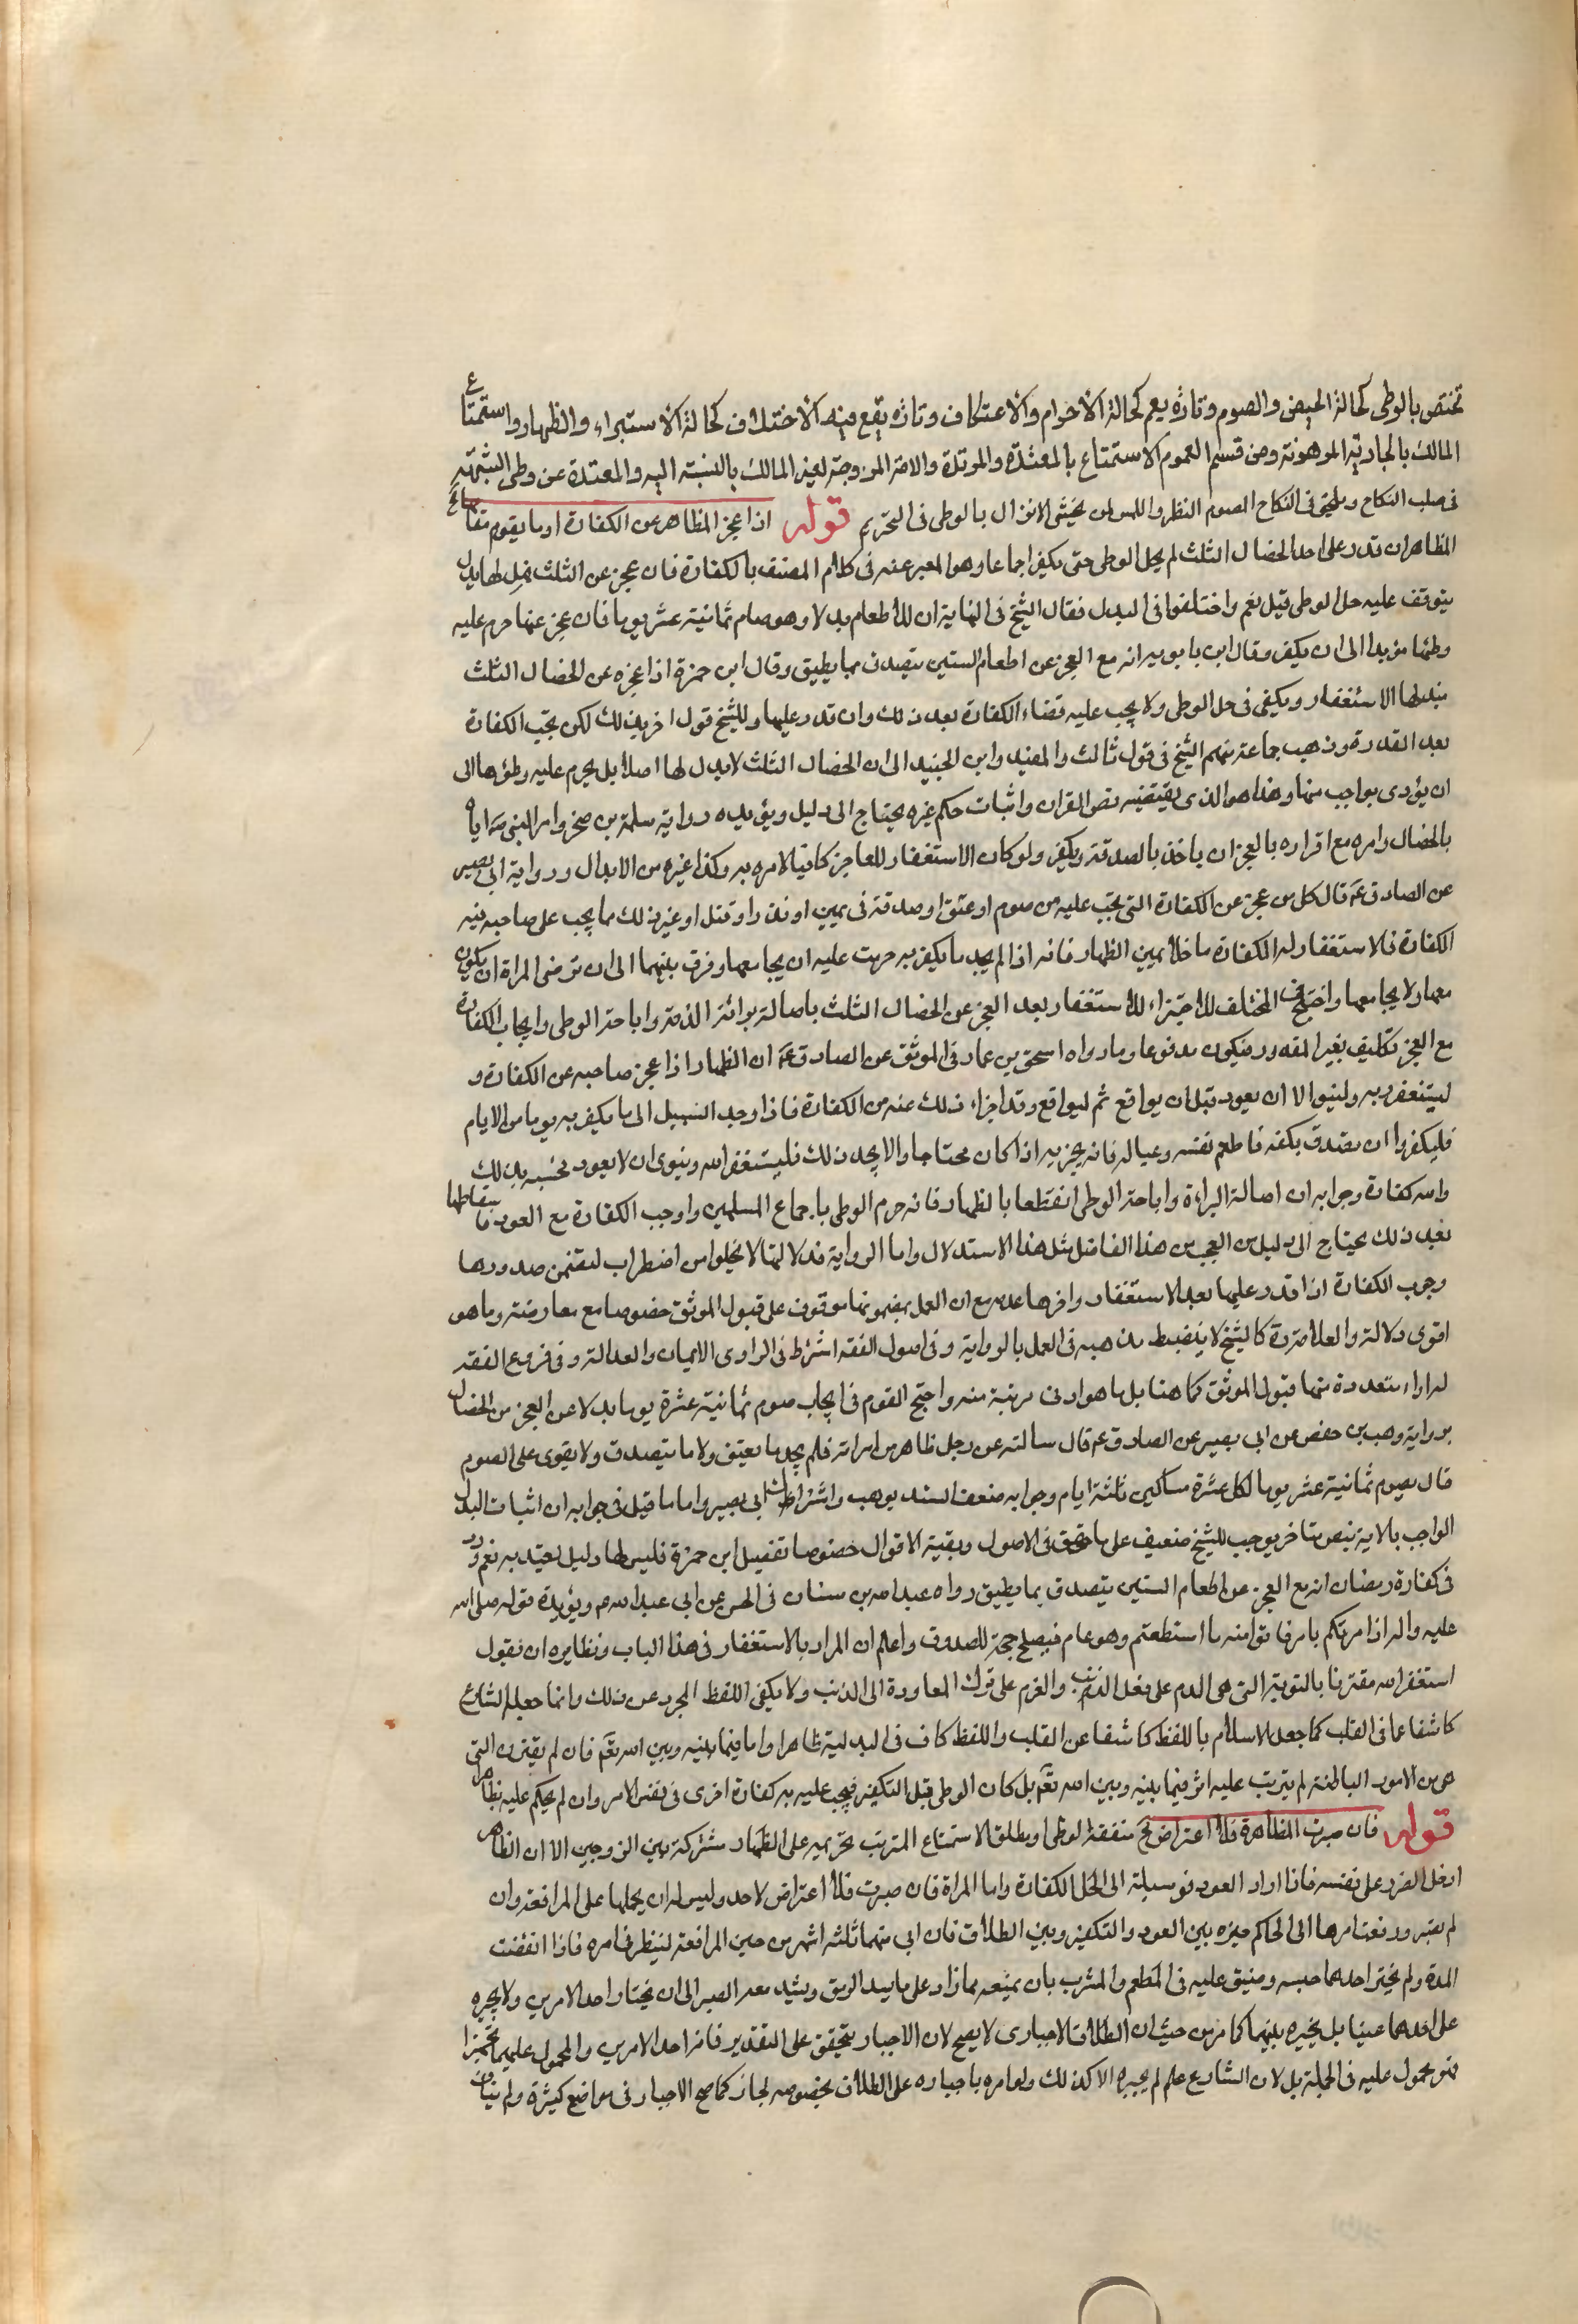 تختص بالوطى كحالة الحيض والصوم وتارة يعم كحالة الاحرام والاعتكاف وتارة يقع فيه الاختلاف كحالة الاستبراء والظهار واستمتاع
المالك بالجارية المرهونة ومن قسم العموم الاستمتاع بالمعتدة والمرتدة والامة المزوجة لغير المالك بالنسبة اليه والمعتدة عن وطى الشبهة
فى صلب النكاح ويلحق فى النكاح الصوم النظر واللمس لمن يخشى الانزال بالوطى فى التحريم قوله اذا عجز المظاهر عن الكفارة او ما يقوم مقامها الخ
المظاهر ان قدر على احد الخصال الثلث لم يحل الوطى حتى يكفر اجماعا وهو المعبر عنه فى كلام المصنف بالكفارة فان عجز عن الثلث فهل لها بدل
يتوقف عليه حل الوطى قيل نعم واختلفوا فى البدل فقال الشيخ فى النهاية ان للاطعام بدلا وهو صيام ثمانية عشر يوما فان عجز عنها حرم عليه
وطئها مؤبدا الى ان يكفر وقال ابن بابويه انه مع العجز عن اطعام الستين يتصدق بما يطيق وقال ابن حمزة اذا عجز عن الخصال الثلث
فبدلها الاستغفار ويكفى فى حل الوطى ولا يجب عليه قضاء الكفارة بعد ذلك وان قدر عليها وللشيخ قول اخر بذلك لكن تجب الكفارة
بعد القدرة وذهب جماعة منهم الشيخ فى قول ثالث والمفيد وابن الجنيد الى ان الخصال الثلث لا بدل لها اصلا بل يحرم عليه وطؤها الى
ان يؤدى بواجب منها وهذا هو الذى يقتضيه نص القران واثبات حكم غيره يحتاج الى دليل ويؤيده رواية سلمة بن صخر وامر النبى ص اياه
بالخصال وامره مع اقراره بالعجز ان ياخذ بالصدقة ويكفر ولو كان الاستغفار للعاجز كافيا لامره به وكذا غيره من الابدال ورواية ابى بصير
عن الصادق ع قال كل من عجز عن الكفارة التى تجب عليه من صوم او عتق او صدقة فى يمين او نذر او قتل او غير ذلك ما يجب على صاحبه فيه
الكفارة فالاستغفار له الكفارة ما خلا يمين الظهار فانه اذا لم يجد ما يكفر به حرمت عليه ان يجامعها وفرق بينهما الى ان ترضى المراة ان يكون
معها ولا يجامعها واحتج فى المختلف للاجتزاء للاستغفار بعد العجز عن الخصال الثلث باصالة برائة الذمة واباحة الوطى وايجاب الكفارة
مع العجز تكليف بغير المقدور فيكون مدفوعا وما رواه اسحق بن عمار فى الموثق عن الصادق ع ان الظهار اذا عجز صاحبه عن الكفارة و
ليستغفر ربه ولينو الا ان يعود قبل ان يواقع ثم ليواقع وقد اجزاء ذلك عنه من الكفارة فاذا وجد السبيل الى ما يكفر به يوما من الايام
فليكفر وا ان تصدق بكفه فاطعم نفسه وعياله فانه يجزيه اذا كان محتاجا والا يجد ذلك فليستغفر الله وينوى ان لا يعود فحسبه بذلك
والله كفارة وجوابه ان اصالة البراءة واباحة الوطى انقطعا بالظهار فانه حرم الوطى باجماع المسلمين واوجب الكفارة مع العود فاسقاطها
بعد ذلك يحتاج الى دليل من العجب من هذا الفاضل مثل هذا الاستدلال واما الرواية فدلالتها لا يخلوا من اضطراب لتضمن صدورها
وجوب الكفارة اذا قدر عليها بعد الاستغفار واخرها عدمه مع ان العمل بمضمونها موقوف على قبول الموثق خصوصا مع معارضته وما هو
اقوى دلالة والعلامة ره كالشيخ لا ينضبط مذهبه فى العمل بالرواية وفى اصول الفقه اشترط فى الراوى الايمان والعدالة وفى فروع الفقه
له اراء متعددة منها قبول الموثق كما هنا بل ما هو ادنى مرتبة منه واحتج القوم فى ايجاب صوم ثمانية عشرة يوما بدلا عن العجز من الخصال
برواية وهب بن حفص عن ابى بصير عن الصادق ع قال سالته عن رجل ظاهر من امراته فلم يجد ما يعتق ولا ما يتصدق ولا يقوى على الصوم
قال يصوم ثمانية عشر يوما لكل عشرة مساكين ثلثة ايام وجوابه ضعف السند بوهب واشتراط ابى بصير واما ما قيل فى جوابه ان اثبات البدل
الواجب بالاية بنص متاخر يوجب للشيخ ضعيف على ما حقق فى الاصول وبقية الاقوال خصوصا تفصيل ابن حمزة فليس لها دليل يعتد به نعم ورد
فى كفارة رمضان انه مع العجز عن اطعام الستين يتصدق بما يطيق رواه عبد الله بن سنان فى الحسن عن ابى عبد الله ع ويؤيده قوله صلى الله
عليه واله اذا امرتكم بامر فاتوا منه ما استطعتم وهو عام فيصلح حجة للصدوق واعلم ان المراد بالاستغفار فى هذا الباب ونظايره ان تقول
استغفر الله مقترنا بالتوبة التى هى الندم على فعل الذنب والعزم على ترك المعاودة الى الذنب ولا يكفى اللفظ المجرد عن ذلك وانما جعله الشارع
كاشفا عما فى القلب كما جعل الاسلام باللفظ كاشفا عن القلب واللفظ كاف فى البدلية ظاهرا واما فيما بينه وبين الله تعم فان لم يقترن التى
هى من الامور الباطنة لم يترتب عليه اثر فيما بينه وبين الله تعم بل كان الوطى قبل التكفير فيجب عليه به كفارة اخرى فى نفس الامر وان لم يحكم عليه بظاهرا
قوله فان صبرت المظاهرة فلا اعتراض الخ منفعة الوطى او مطلق الاستمتاع المترتب تحريمه على الظهار مشتركة بين الزوجين الا ان المظاهر
ادخل الضرر على نفسه فاذا اراد العود فوسيلة الى الحل الكفارة واما المراة فان صبرت فلا اعتراض لاحد وليس له ان يحملها على المرافعة وان
لم تصبر ورفعت امرها الى الحاكم خيره بين العود والتكفير وبين الطلاق فان ابى منهما ثلثة اشهر من حين المرافعة لينظر فى امره فاذا انقضت
المدة ولم يختر احدهما حبسه وضيق عليه فى المطعم والمشرب بان يمنعه مما زاد على ما يسد الرمق ويشد معه الصبر الى ان يختار احد الامرين ولا يجبره
على احدهما عينا بل يخيره بينهما كما مر من حيث ان الطلاق الاجبارى لا يصح لان الاجبار يتحقق على التقدير فانه احد الامرين والمحمول عليهما تخييرا
فهو محمول عليه فى الجملة بل لان الشارع علم لم يجبره الا كذلك ولو امره باجباره على الطلاق بخصوصه لجاز كما صح الاجبار فى مواضع كثيرة ولم يناف